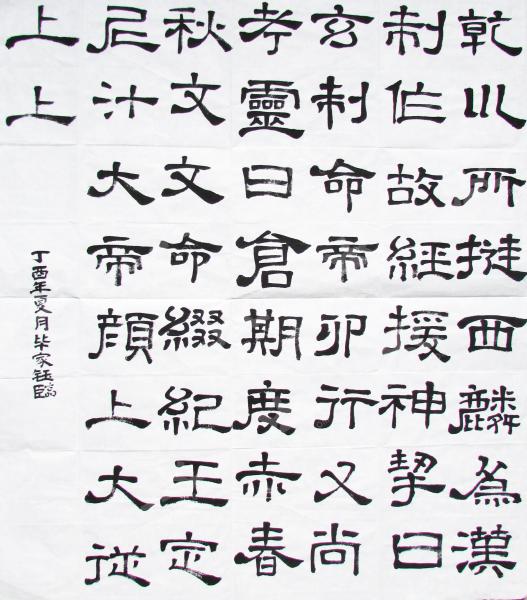 乾川所挺西麟為漢
制作故經援神挈曰
玄制命帝卯行又尚
考靈曰倉期度赤春
秋文文命綴紀王定
尼汁大帝顏上大從
上上
丁酉年夏月毕家钰臨